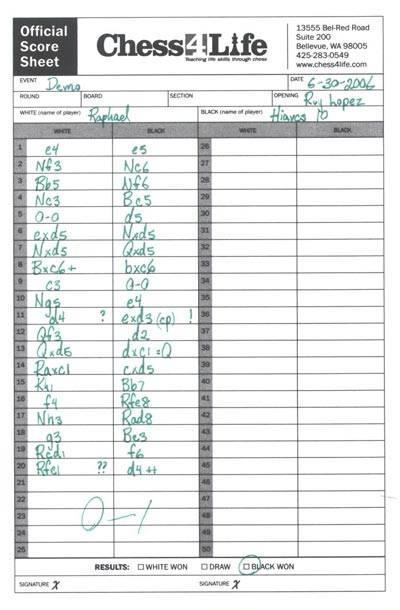 Official
Score
Sheet
Chess4Life
Teaching life skills through chess
13555 Bel-Red Road
Suite 200
Bellevue, WA 98005
425-283-0549
www.chess4life.com
EVENT Demo DATE 6-30-2006
ROUND BOARD SECTION OPENING Ruy Lopez
WHITE (name of player) Raphael BLACK (name of player) Hiarcs 10
WHITE BLACK WHITE BLACK
1 e4 e5 26
2 Nf3 Nc6 27
3 Bb5 Nf6 28
4 Nc3 Bc5 29
5 0-0 d5 30
6 exd5 Nxd5 31
7 Nxd5 Qxd5 32
8 Bxc6+ bxc6 33
9 c3 0-0 34
10 Ng5 e4 35
11 d4 ? exd3 (ep) ! 36
12 Qf3 d2 37
13 Qxd5 dxc1=Q 38
14 Raxc1 cxd5 39
15 Kh1 Bb7 40
16 f4 Rfe8 41
17 Nh3 Rad8 42
18 g3 Be3 43
19 Rcd1 f6 44
20 Rfe1 ?? d4++ 45
21 46
22 47
23 0-1 48
24 49
25 50
RESULTS: WHITE WON DRAW BLACK WON
SIGNATURE x SIGNATURE x